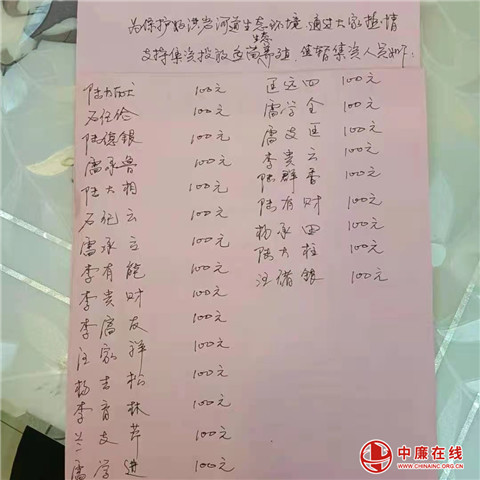 为保护好洪岩河道生态环境,通过大家
支持集资投放鱼苗养殖,集资人员如下:
生态
100元
石任伦 100元
陆德银 100元
雷承鲁 100元
陆大相 100元
石纪云 100元
雷承立 100元
李有能 100元
李贵财 100元
李富友 100元
汪家祥 100元
杨吉松 100元
李育林 100元
兰支节 100元
雷学进 100元
匡远四 100元
雷学全 100元
雷支匡 100元
李贵云 100元
陆群香 100元
陆有财 100元
杨承田 100元
陆大柱 100元
汪猪银 100元
中廉在线
WWW.CHINAINC.ORG.CN